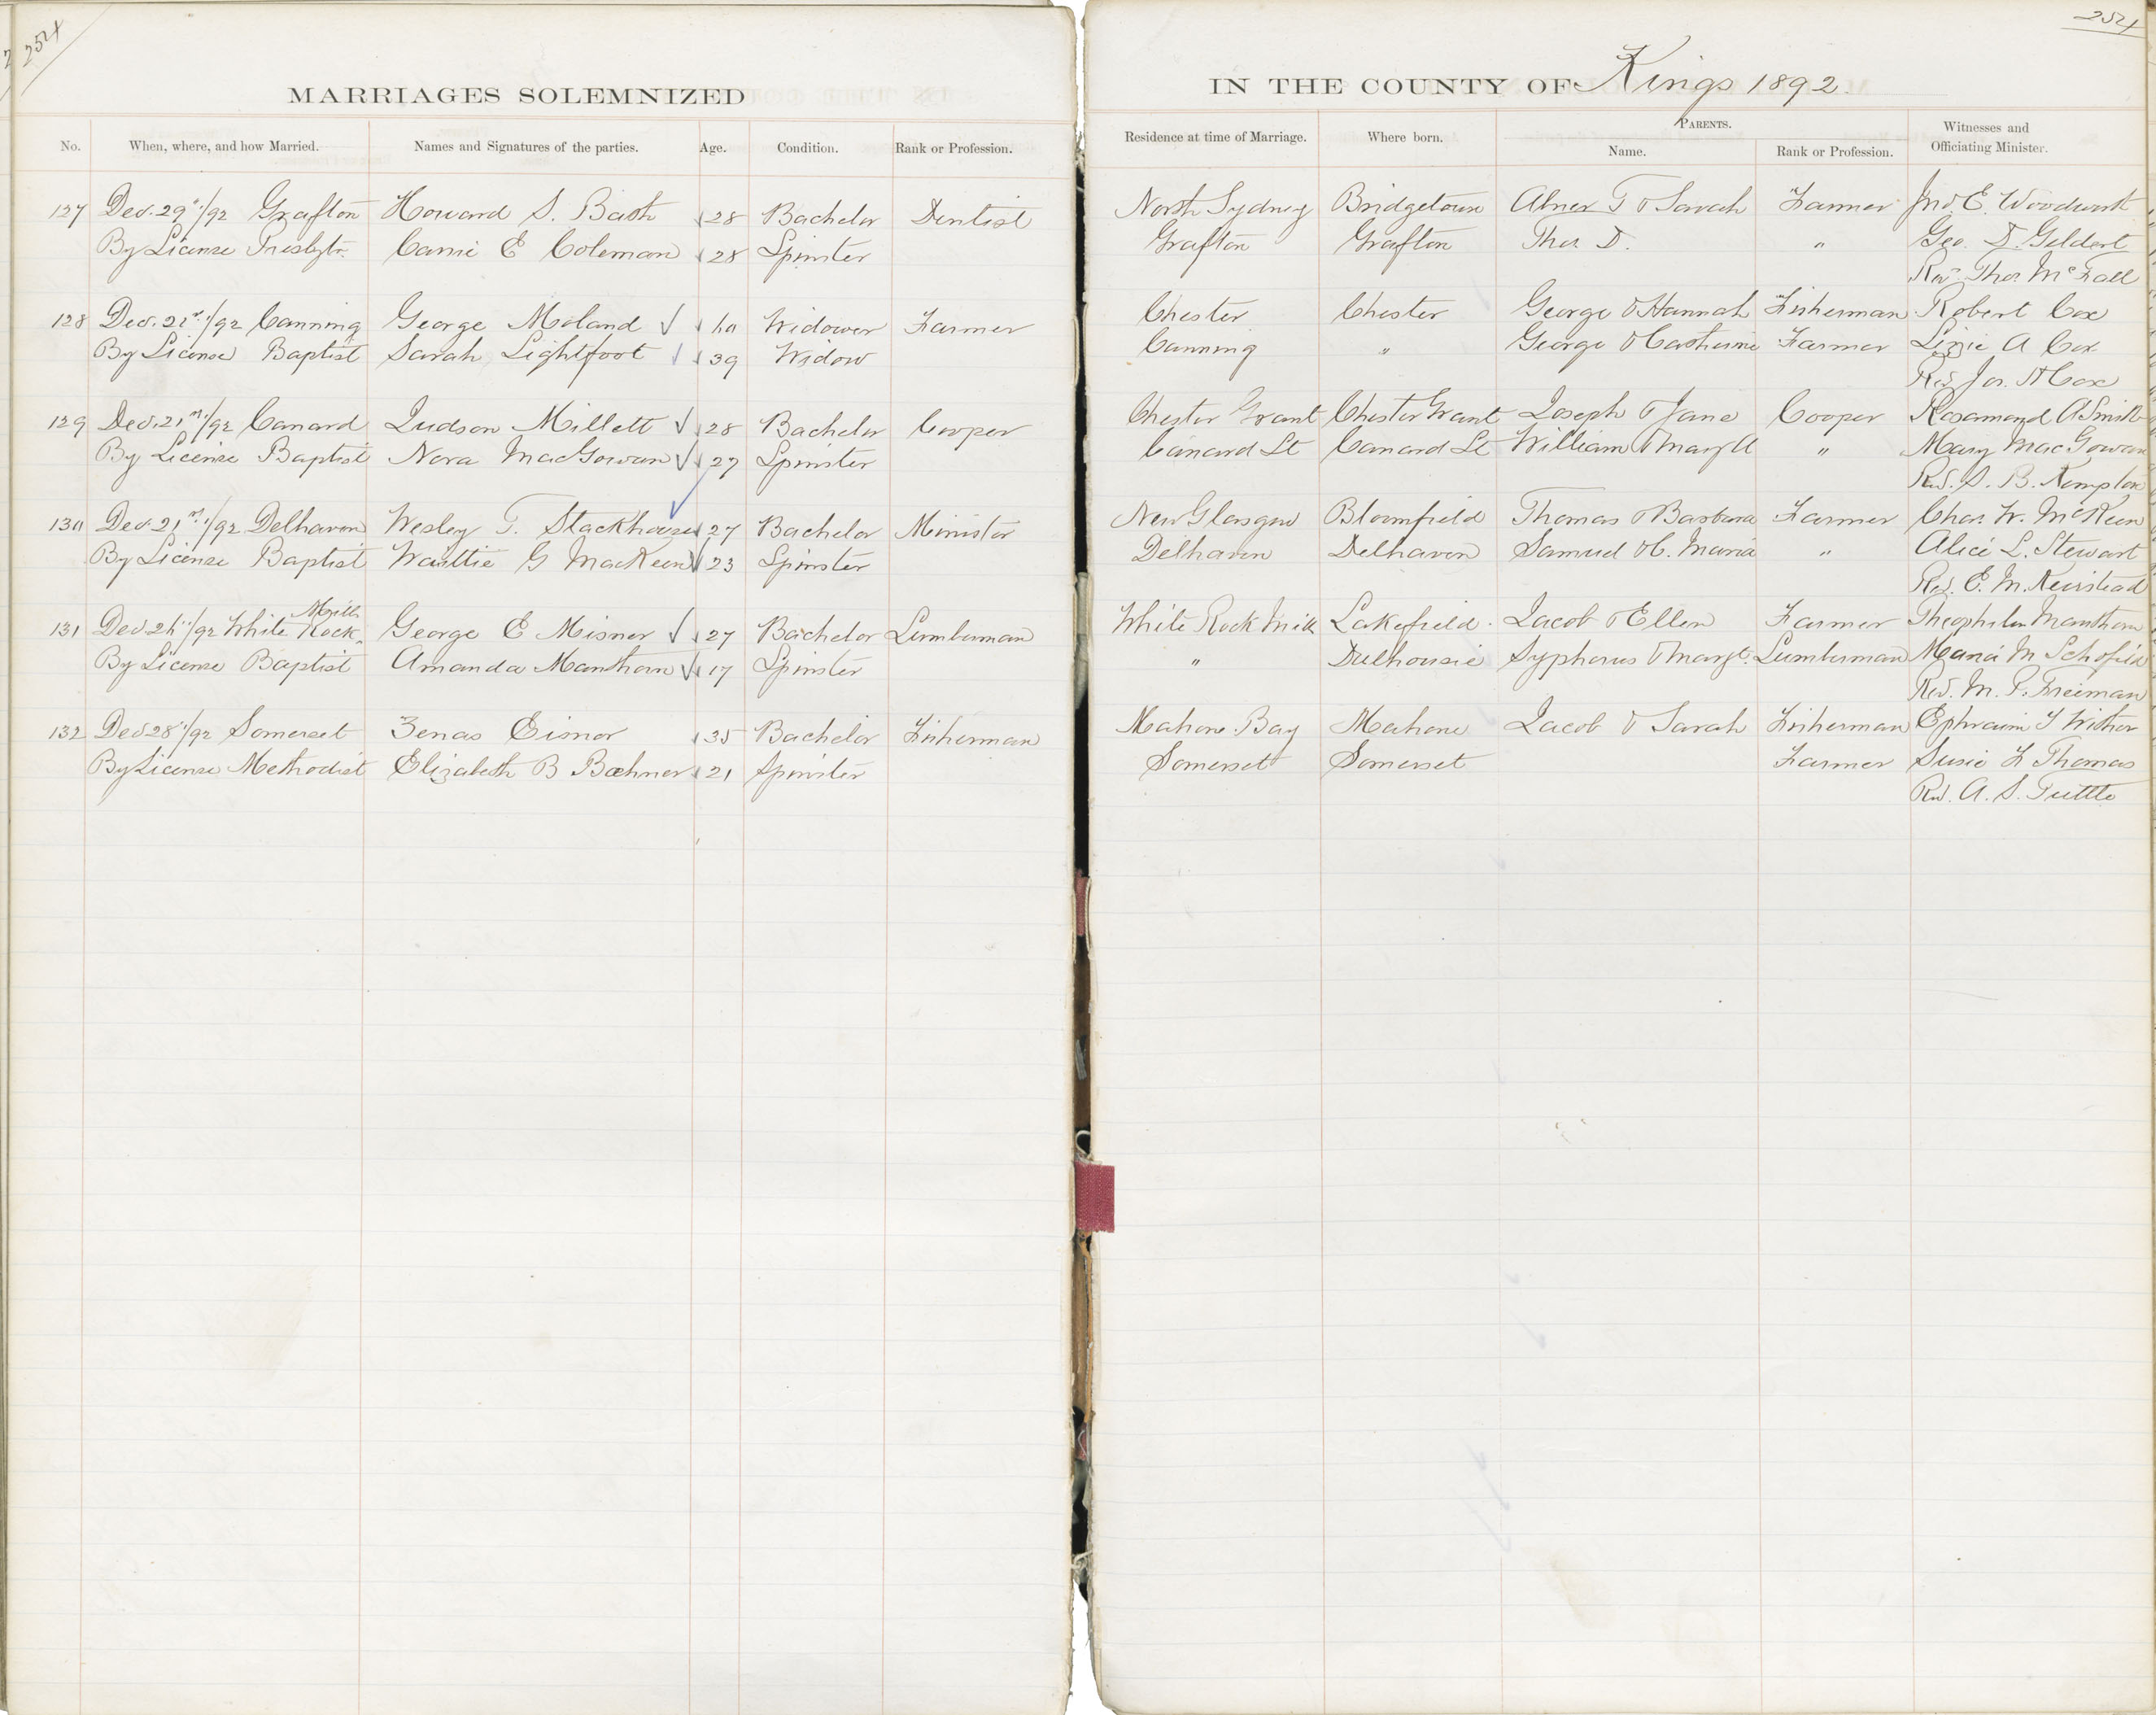 254
MARRIAGES SOLEMNIZED
No. When, where, and how Married. Names and Signatures of the parties. Age. Condition. Rank or Profession.
127 Dec. 29"/92 Grafton Howard S. Bath 28 Bachelor Dentist
By License Presbytr. Carrie E Coleman 28 Spinster
128 Dec. 21st/92 Canning George Moland 60 Widower Farmer
By License Baptist Sarah Lightfoot 39 Widow
129 Dec. 21st/92 Canard Judson Millett 28 Bachelor Cooper
By License Baptist Nora MacGowan 27 Spinster
130 Dec. 21st/92 Delhaven Wesley T. Stackhouse 27 Bachelor Minister
By License Baptist G MacKeen 23 Spinster
131 Dec 24"/92 White Rock Mills George E Misner 27 Bachelor Lumberman
By License Baptist Amanda Manthorn 17 Spinster
132 Dec 28"/92 Somerset Zenas Eisnor 35 Bachelor Fisherman
By License Methodist Elizabeth B Bæhner 21 Spinster
254
IN THE COUNTY OF Kings 1892.
Residence at time of Marriage. Where born. PARENTS. Name. Rank or Profession. Witnesses and Officiating Minister.
North Sydney Bridgetown Abner T & Sarah Farmer Jno. E. Woodworth
Grafton Grafton Thos. D. " Geo. D. Geldert
Rev. Thos. McFall
Chester Chester George & Hannah Fisherman Robert Cox
Canning " George & Catherine Farmer Lizzie A Cox
Rev. Jos. H Cox
Chester Grant Chester Grant Joseph & Jane Cooper Rosamond A Smith
Canard St Canard St William & Margt " Mary MacGowan
Rev. S. B. Kempton
New Glasgow Bloomfield Thomas & Barbara Farmer Chas. W. McKeen
Delhaven Delhaven Samuel & C. Maria " Alice L. Stewart
Rev. E. M. Keirstead
White Rock Mills Lakefield Jacob & Ellen Farmer Manthorn
" Dalhousie Sypharus & Margt. Lumberman Maria M Schofield
Rev. M. P. Freeman
Mahone Bay Mahone Jacob & Sarah Fisherman Ephraim
Somerset Somerset Farmer Susie F Thomas
Rev. A. S. Tuttle